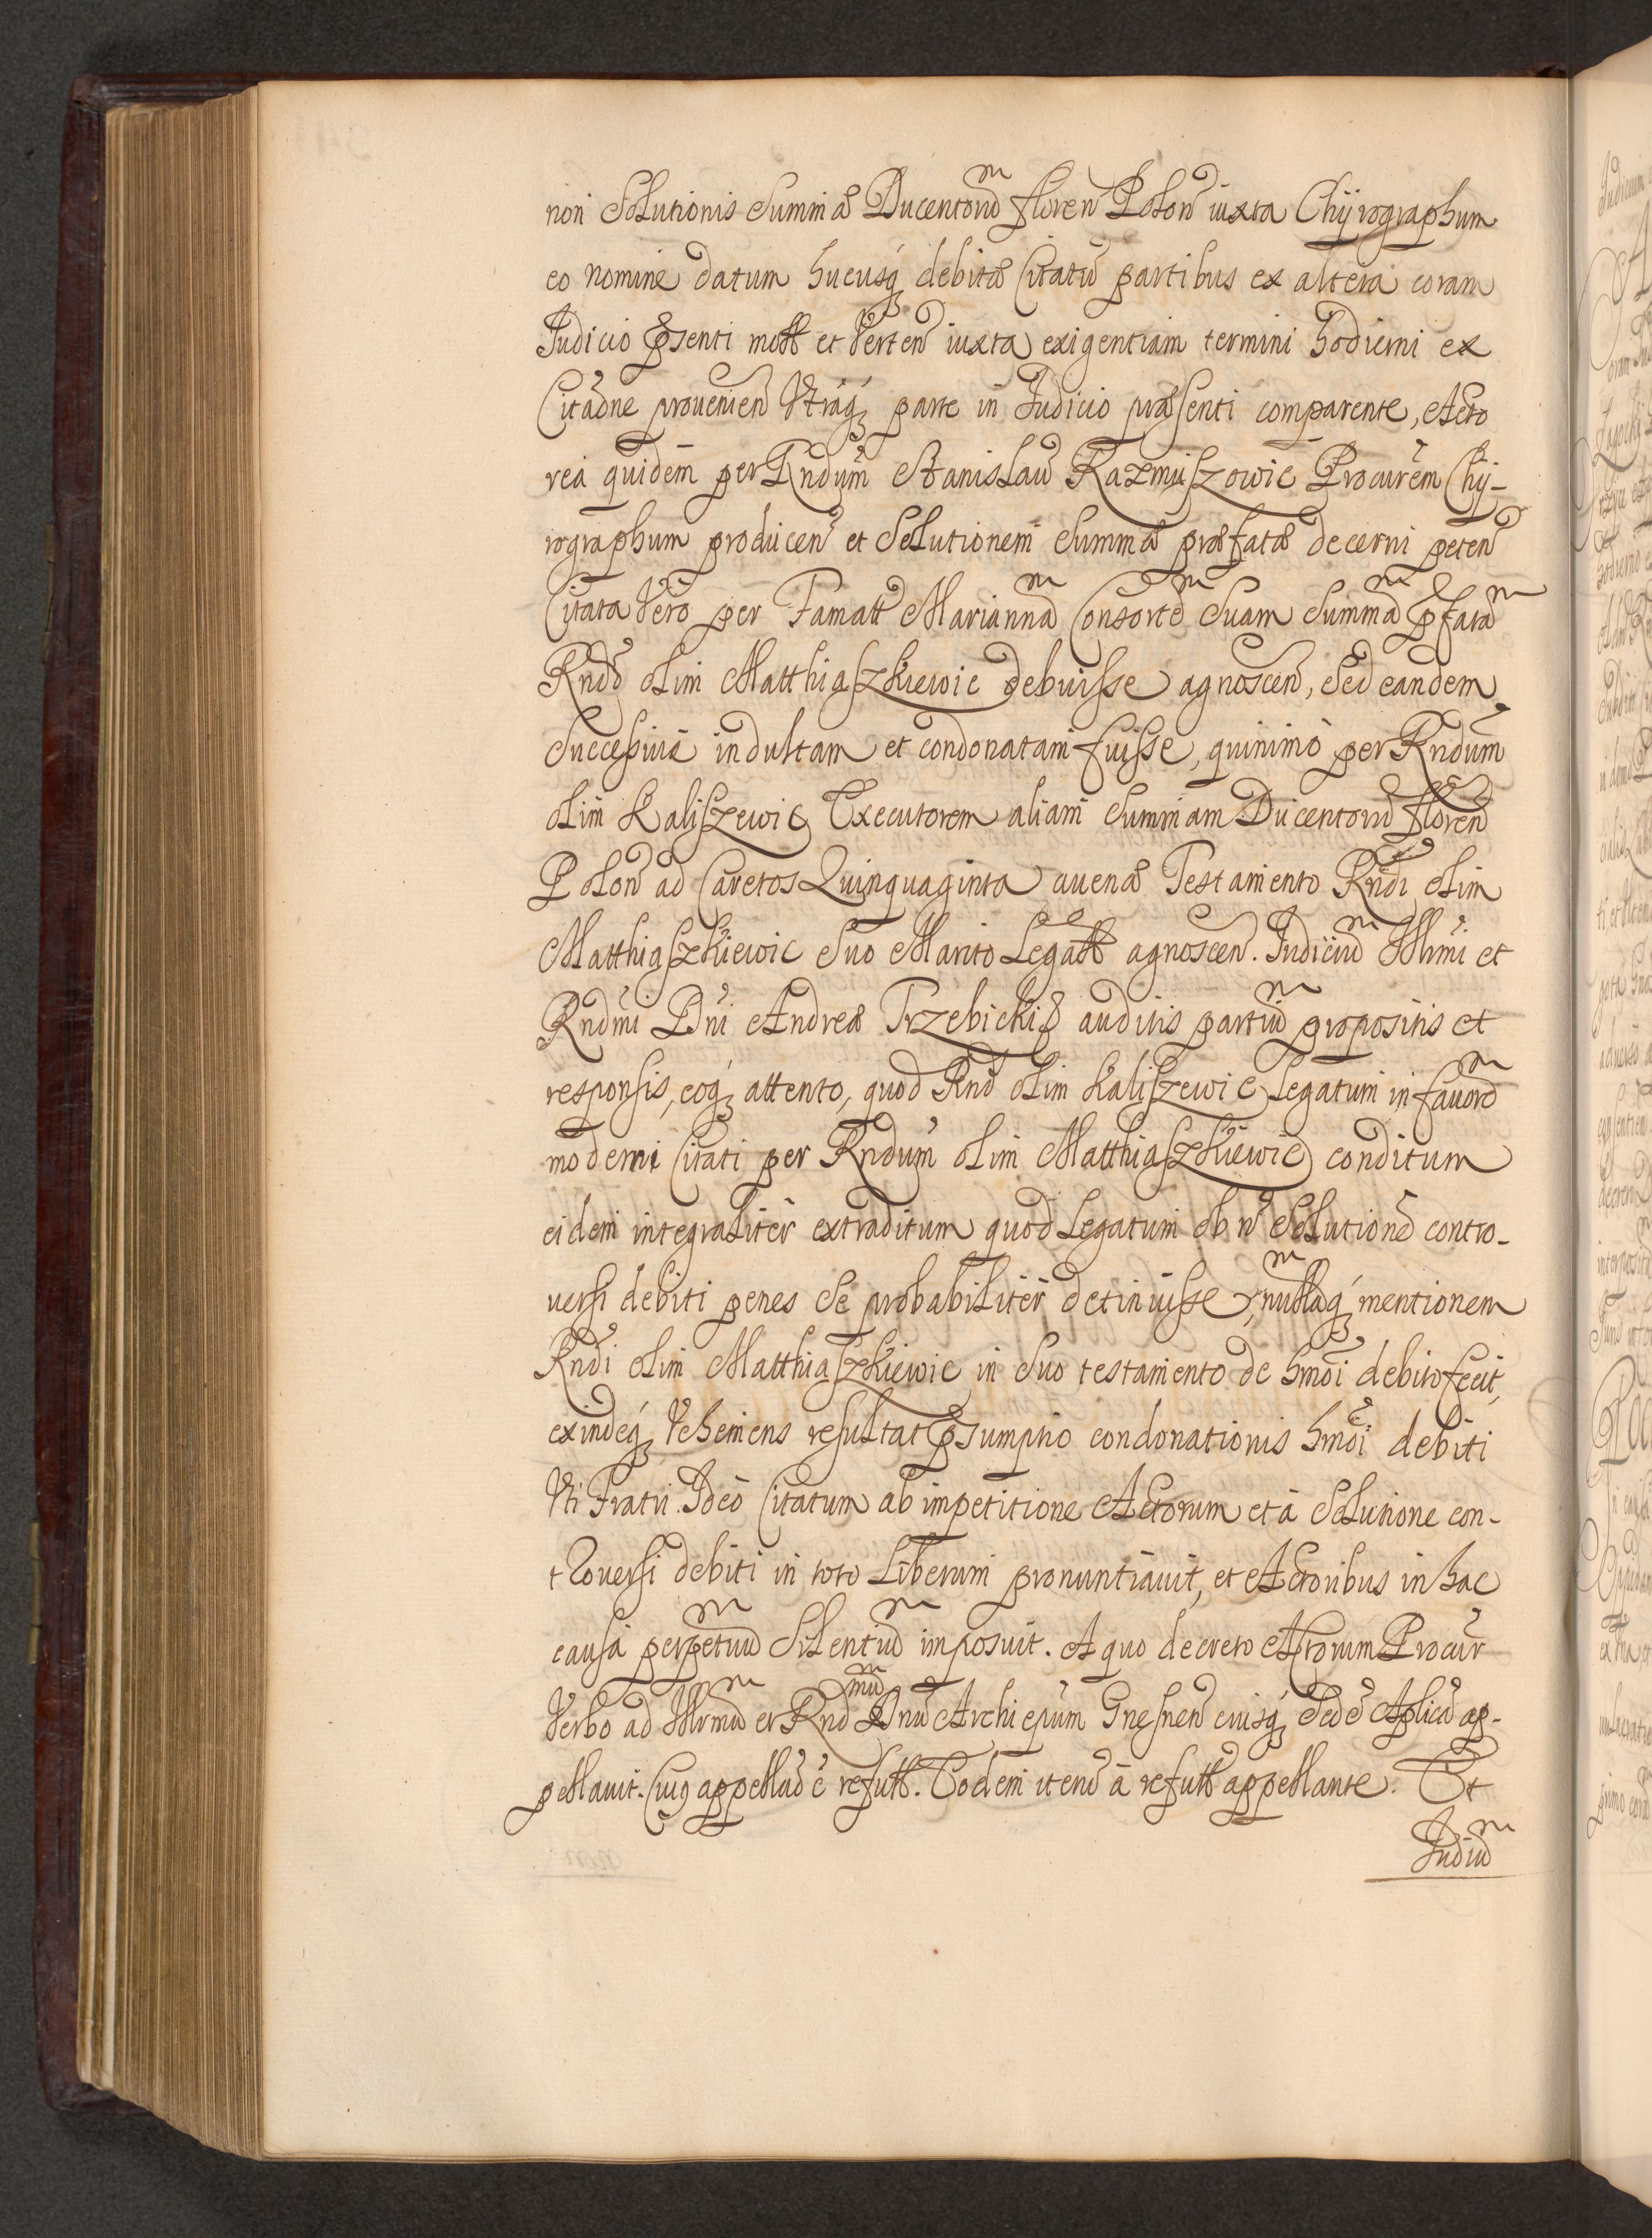 non Solutionis Summæ Ducentorũ floreñ Poloñ iuxta Chÿrographum
eo nomine datum hucusq₃ debitæ Citatũ partibus ex altera coram
Judicio pñsenti mott et Verteñ iuxta exigentiam termini hodierni ex
Citãone proueñieñ Utráq₃ parte in Judicio præsenti comparente, Acto
rea quidem per Rndum Stanislaũ Kazmiszowic Procurem Chÿ-
rographum produceñ et Solutionem Summæ præfatæ decerni peteñ
Citata Vero per Famatt Mariannã Consortẽ Suam Summã pfatã
Rndo olim Matthiaszkiewic debuisse agnosceñ, Sed eandem
Successiuè indultam et condonatam fuisse, quinimò per Rndum
olim Kaliszewic Executorem aliam Summam Ducentorũ floreñ
Poloñ ad Caretos Quinquaginta auenæ Testamento Rndi olim
Matthiaszkiewic Suo Marito Legatt agnosceñ. Judiciũ Illrmi et
Rndmi Dni Andreæ Trzebicki &c auditis partiũ propositis et
responsis, eoq₃ attento, quod Rnd olim Kaliszewic Legatum in fauorẽ
moderni Citati per Rndum olim Matthiaszkiewic conditum
eidem integraliter extraditum quod Legatum ob ñ Solutionẽ contro-
uersi debiti penes Se probabiliter detinuisse, nullãq₃ mentionem
Rndi olim Matthiaszkiewic in Suo testamento de hmõi debito fecit,
exindeq₃ Vehemens resultat psumptio condonationis hmõi debiti
Uti Fratri. Ideo Citatum ab impetitione Actorum et à Solutione con-
trouersi debiti in toto Liberum pronuntiauit, et Actoribus in hac
causa perpetuũ Silentiũ imposuit. A quo decreto Actorum Procur
Verbo ad Illrmũ et Rndmũ Dnũ Archiepum Gnesneñ eiusq₃ Sedẽ Aplicã ap-
pellauit. Cui9 appellaõ ẽ refutt. Eodem iteruũ à refutt appellante. Et
Judiũ